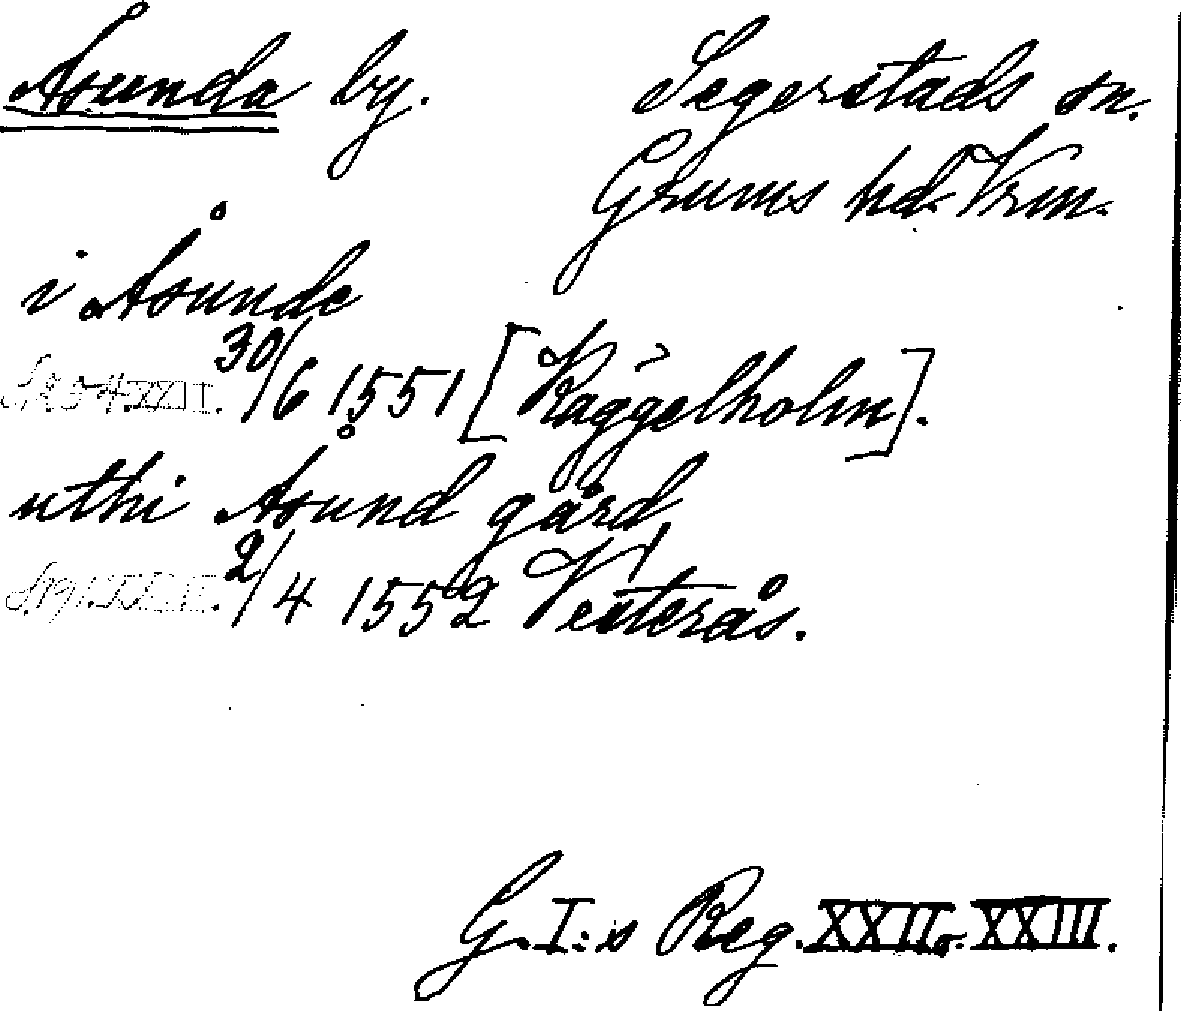 Åsunda by. Segerstads sn.
Grums hd. Vrm.
i Åsunde
30/6 1551 [Käggelholm].
uthi Åsund gård
2/4 1552 Vesterås.
G. I:s Reg. XXII o. XXIII.